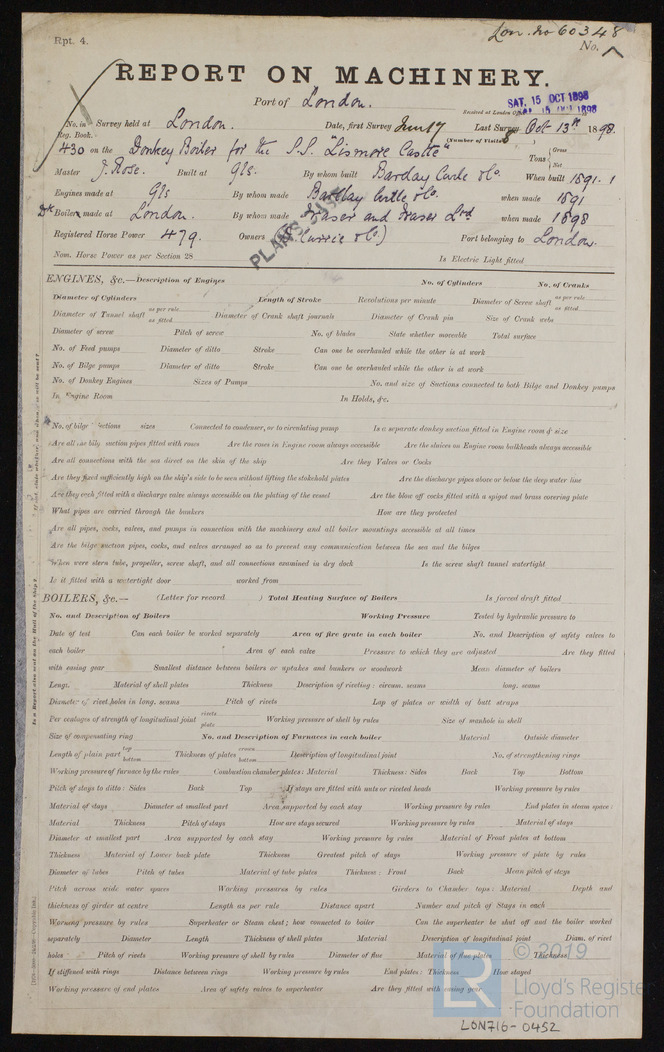 Rpt. 4.
Lon. no 60348
No.
REPORT ON MACHINERY.
Port of London.
Received at London
SAT. 15 OCT 1898
No. in Survey held at London. Date, first Survey June 17 Last Survey Oct 13th 1898.
Reg. Book. (Number of Visits 8 )
430 on the Donkey Boiler for the S.S. Lismore Castle" Tons { Gross Net
Master J. Rose. Built at Gls. By whom built Barclay Curle & Co. When built 1891. 1
Engines made at Gls By whom made Barclay Curle & Co. when made 1891
Dk Boilers made at London. By whom made Fraser and Fraser Ltd when made 1898
Registered Horse Power 479. Owners (Currie & Co) Port belonging to London.
Nom. Horse Power as per Section 28 Is Electric Light fitted
ENGINES, &c.—Description of Engines No. of Cylinders No. of Cranks
Diameter of Cylinders Length of Stroke Revolutions per minute Diameter of Screw shaft as per rule as fitted
Diameter of Tunnel shaft as per rule as fitted Diameter of Crank shaft journals Diameter of Crank pin Size of Crank webs
Diameter of screw Pitch of screw No. of blades State whether moveable Total surface
No. of Feed pumps Diameter of ditto Stroke Can one be overhauled while the other is at work
No. of Bilge pumps Diameter of ditto Stroke Can one be overhauled while the other is at work
No. of Donkey Engines Sizes of Pumps No. and size of Suctions connected to both Bilge and Donkey pumps
In Engine Room In Holds, &c.
No. of bilge injections sizes Connected to condenser, or to circulating pump Is a separate donkey suction fitted in Engine room & size
Are all the bilge suction pipes fitted with roses Are the roses in Engine room always accessible Are the sluices on Engine room bulkheads always accessible
Are all connections with the sea direct on the skin of the ship Are they Valves or Cocks
Are they fixed sufficiently high on the ship's side to be seen without lifting the stokehold plates Are the discharge pipes above or below the deep water line
Are they each fitted with a discharge valve always accessible on the plating of the vessel Are the blow off cocks fitted with a spigot and brass covering plate
What pipes are carried through the bunkers How are they protected
Are all pipes, cocks, valves, and pumps in connection with the machinery and all boiler mountings accessible at all times
Are the bilge suction pipes, cocks, and valves arranged so as to prevent any communication between the sea and the bilges
When were stern tube, propeller, screw shaft, and all connections examined in dry dock Is the screw shaft tunnel watertight
Is it fitted with a watertight door worked from
BOILERS, &c.— (Letter for record ) Total Heating Surface of Boilers Is forced draft fitted
No. and Description of Boilers Working Pressure Tested by hydraulic pressure to
Date of test Can each boiler be worked separately Area of fire grate in each boiler No. and Description of safety valves to
each boiler Area of each valve Pressure to which they are adjusted Are they fitted
with easing gear Smallest distance between boilers or uptakes and bunkers or woodwork Mean diameter of boilers
Length Material of shell plates Thickness Description of riveting: circum. seams long. seams
Diameter of rivet holes in long. seams Pitch of rivets Lap of plates or width of butt straps
Per centages of strength of longitudinal joint rivets plate Working pressure of shell by rules Size of manhole in shell
Size of compensating ring No. and Description of Furnaces in each boiler Material Outside diameter
Length of plain part top bottom Thickness of plates crown bottom Description of longitudinal joint No. of strengthening rings
Working pressure of furnace by the rules Combustion chamber plates: Material Thickness: Sides Back Top Bottom
Pitch of stays to ditto: Sides Back Top If stays are fitted with nuts or riveted heads Working pressure by rules
Material of stays Diameter at smallest part Area supported by each stay Working pressure by rules End plates in steam space:
Material Thickness Pitch of stays How are stays secured Working pressure by rules Material of stays
Diameter at smallest part Area supported by each stay Working pressure by rules Material of Front plates at bottom
Thickness Material of Lower back plate Thickness Greatest pitch of stays Working pressure of plate by rules
Diameter of tubes Pitch of tubes Material of tube plates Thickness: Front Back Mean pitch of stays
Pitch across wide water spaces Working pressures by rules Girders to Chamber tops: Material Depth and
thickness of girder at centre Length as per rule Distance apart Number and pitch of Stays in each
Working pressure by rules Superheater or Steam chest; how connected to boiler Can the superheater be shut off and the boiler worked
separately Diameter Length Thickness of shell plates Material Description of longitudinal joint Diam. of rivet
holes Pitch of rivets Working pressure of shell by rules Diameter of flue Material of flue plates Thickness
If stiffened with rings Distance between rings Working pressure by rules End plates: Thickness How stayed
Working pressure of end plates Area of safety valves to superheater Are they fitted with easing gear
© 2019
LR
Lloyd's Register
Foundation
LON716-0452